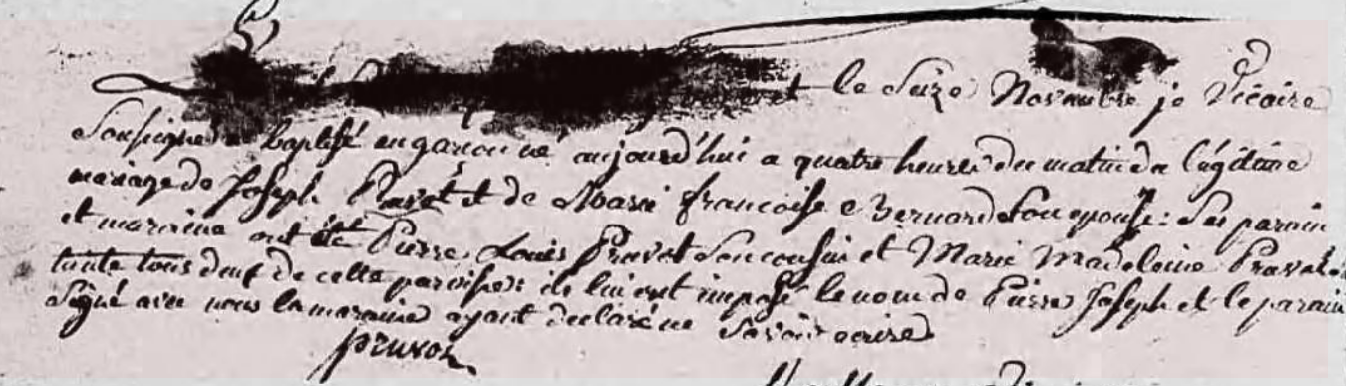 le Seize Novembre je Vicaire
Soussigné a baptisé un garcon né aujourd'hui a quatre heures du matin du légitime
mariage de Joseph Pruvot et de Marie francoise Bernard Son epouse : Ses parain
et maraine ont été Pierre Louis Pruvot Son cousin et Marie Madeleine Pruvot Sa
tante tous deux de cette paroisse ils lui ont imposé le nom de Pierre Joseph et le parain
Signé avec nous la maraine ayant declaré ne Savoir ecrire
pruvot